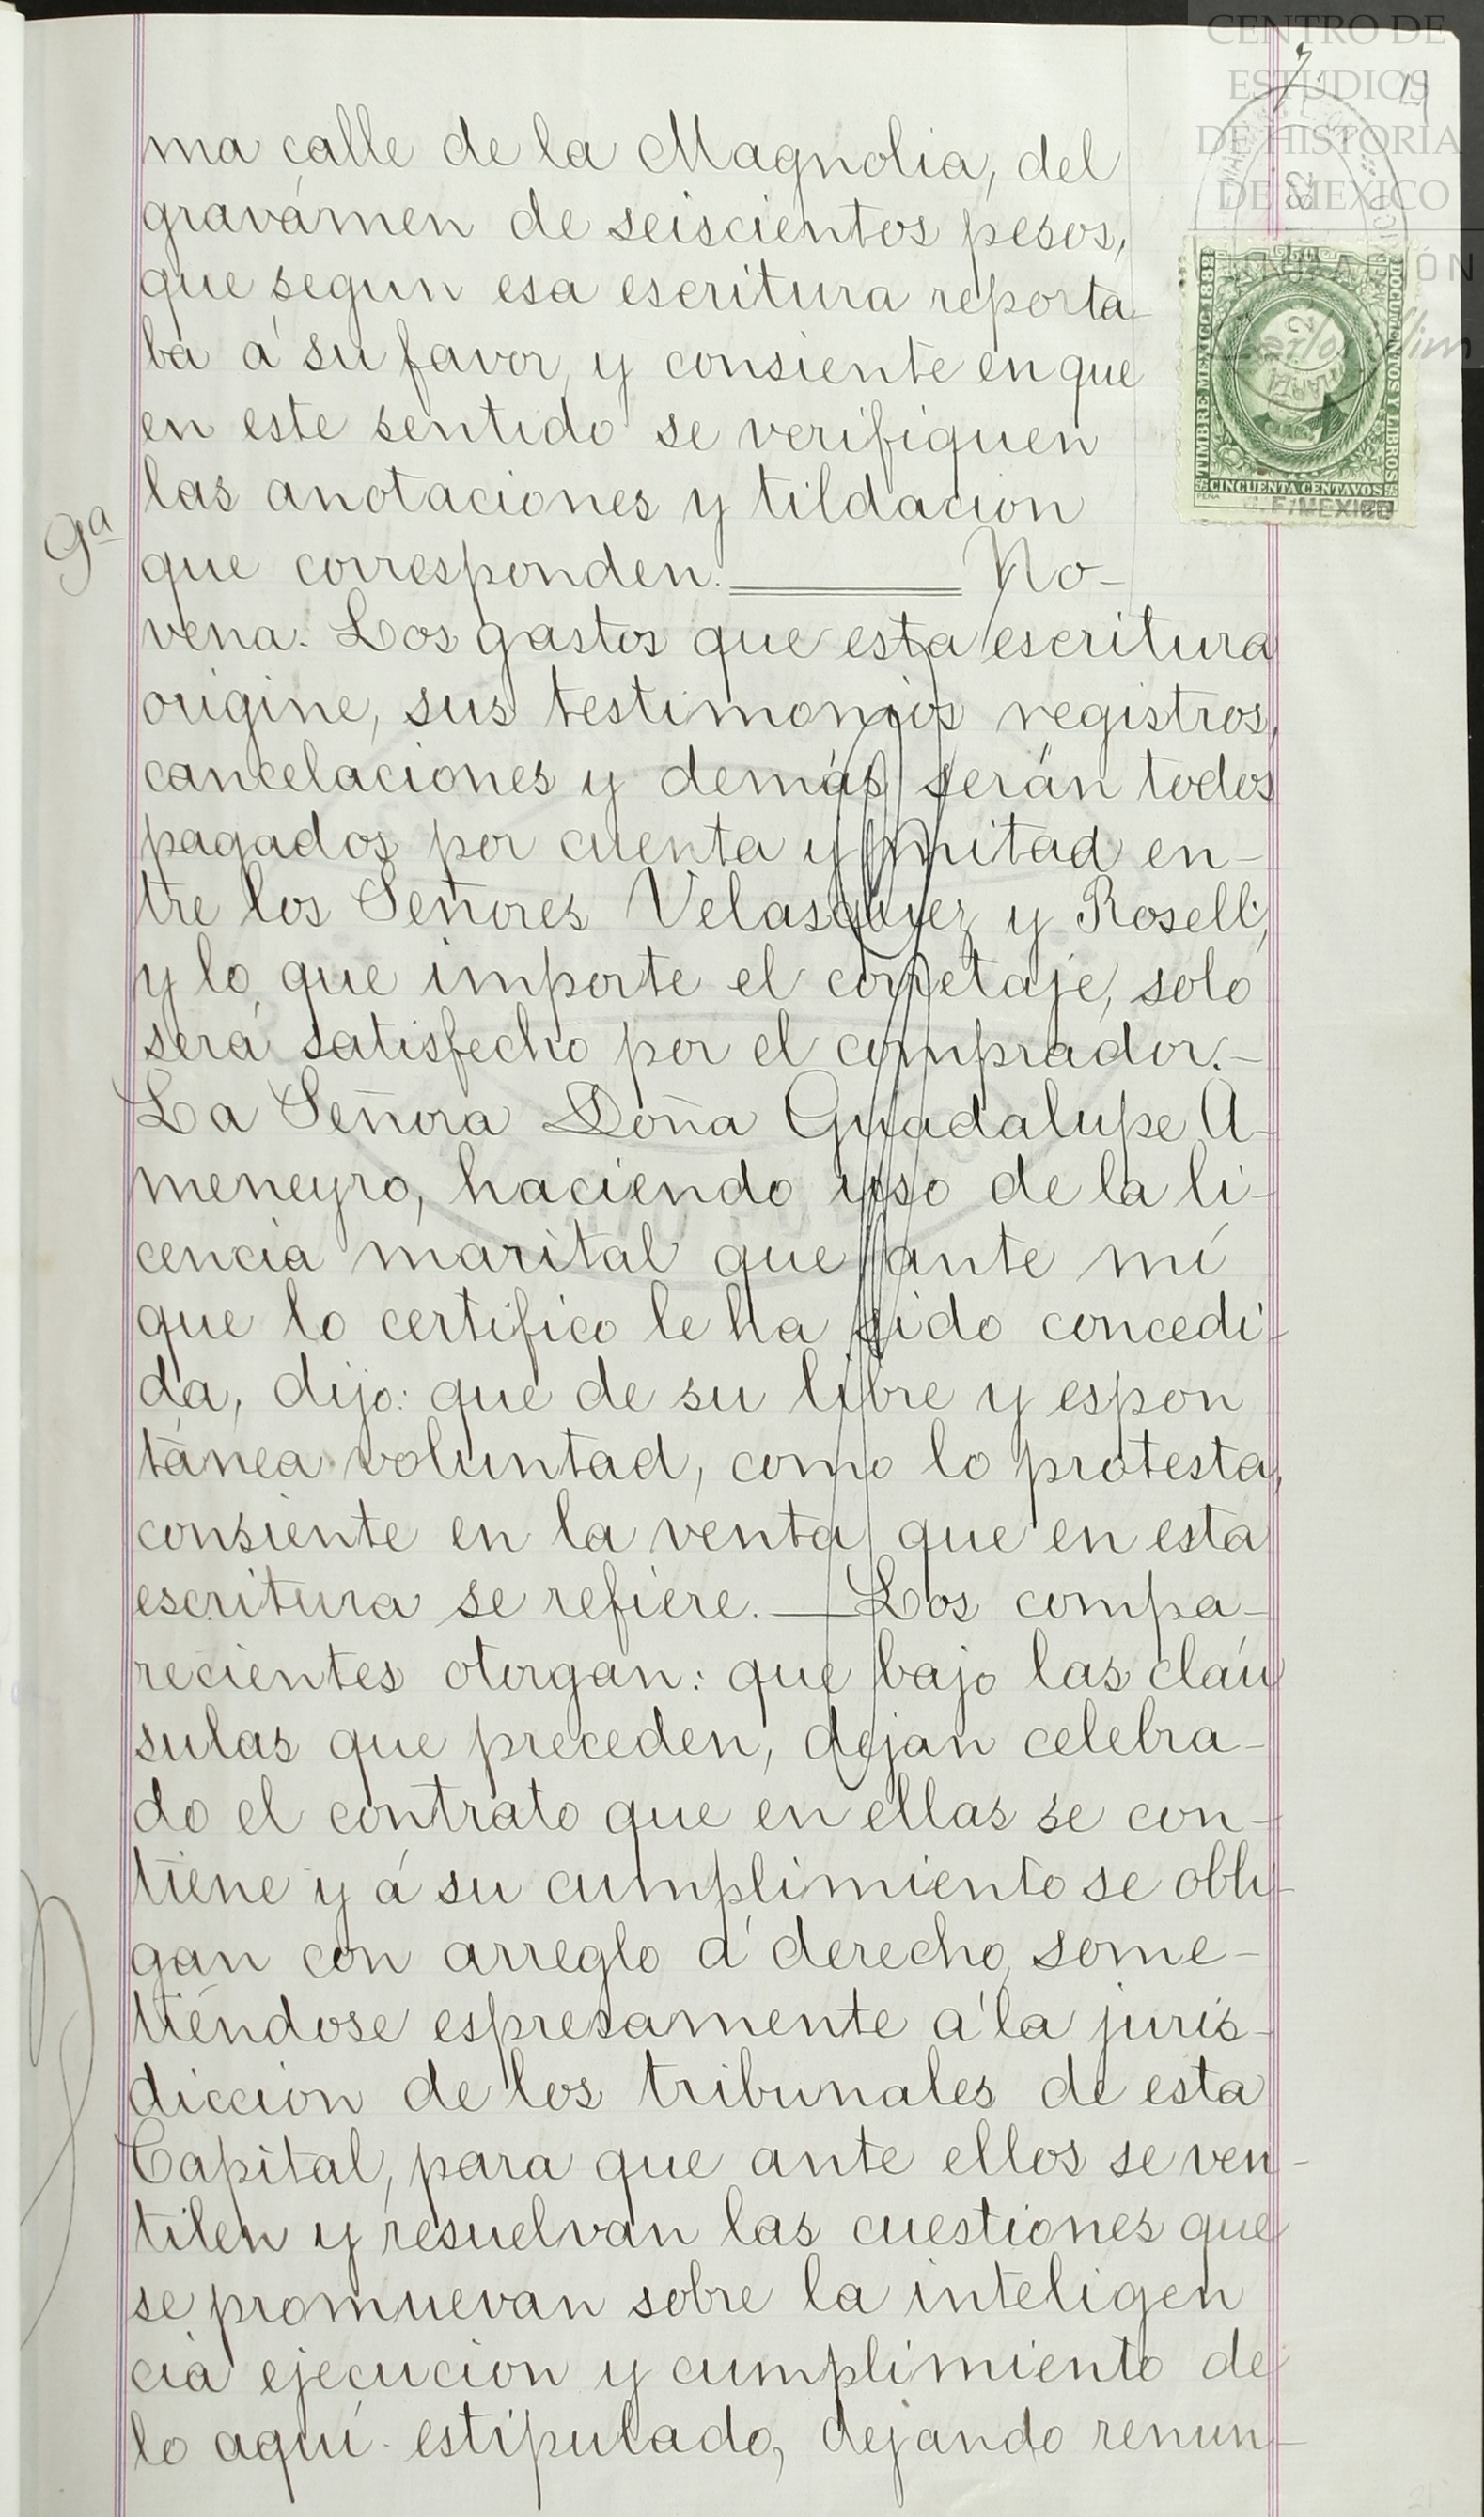 CENTRO DE
ESTUDIOS
DE HISTORIA
DE MEXICO
ma calle de la Magnolia, del
gravámen de seiscientos pesos,
que segun esa escritura reporta-
ba á su favor, y consiente en que
en este sentido se verifiquen
las anotaciones y tildacion
9a
que corresponden. No-
vena. Los gastos que esta escritura
origine, sus testimonios registros,
cancelaciones y demás serán todos
pagados por cuenta y mitad en-
tre los Señores Velasquez y Rosell,
y lo que importe el corretaje, solo
será satisfecho por el comprador.-
La Señora Doña Guadalupe A-
meneyro, haciendo uso de la li-
cencia marital que ante mí
que lo certifico le ha sido concedi-
da, dijo: que de su libre y espon
tánea voluntad, como lo protesta,
consiente en la venta que en esta
escritura se refiere.—Los compa-
recientes otorgan: que bajo las cláu
sulas que preceden, dejan celebra-
do el contrato que en ellas se con-
tiene y á su cumplimiento se obli-
gan con arreglo á derecho, some-
tiéndose espresamente á la juris-
diccion de los tribunales de esta
Capital, para que ante ellos se ven-
tilen y resuelvan las cuestiones que
se promuevan sobre la inteligen
cia ejecucion y cumplimiento de
lo aquí estipulado, dejando renun-
TIMBRE MEXICO 1889
DOCUMENTOS Y LIBROS
CINCUENTA CENTAVOS